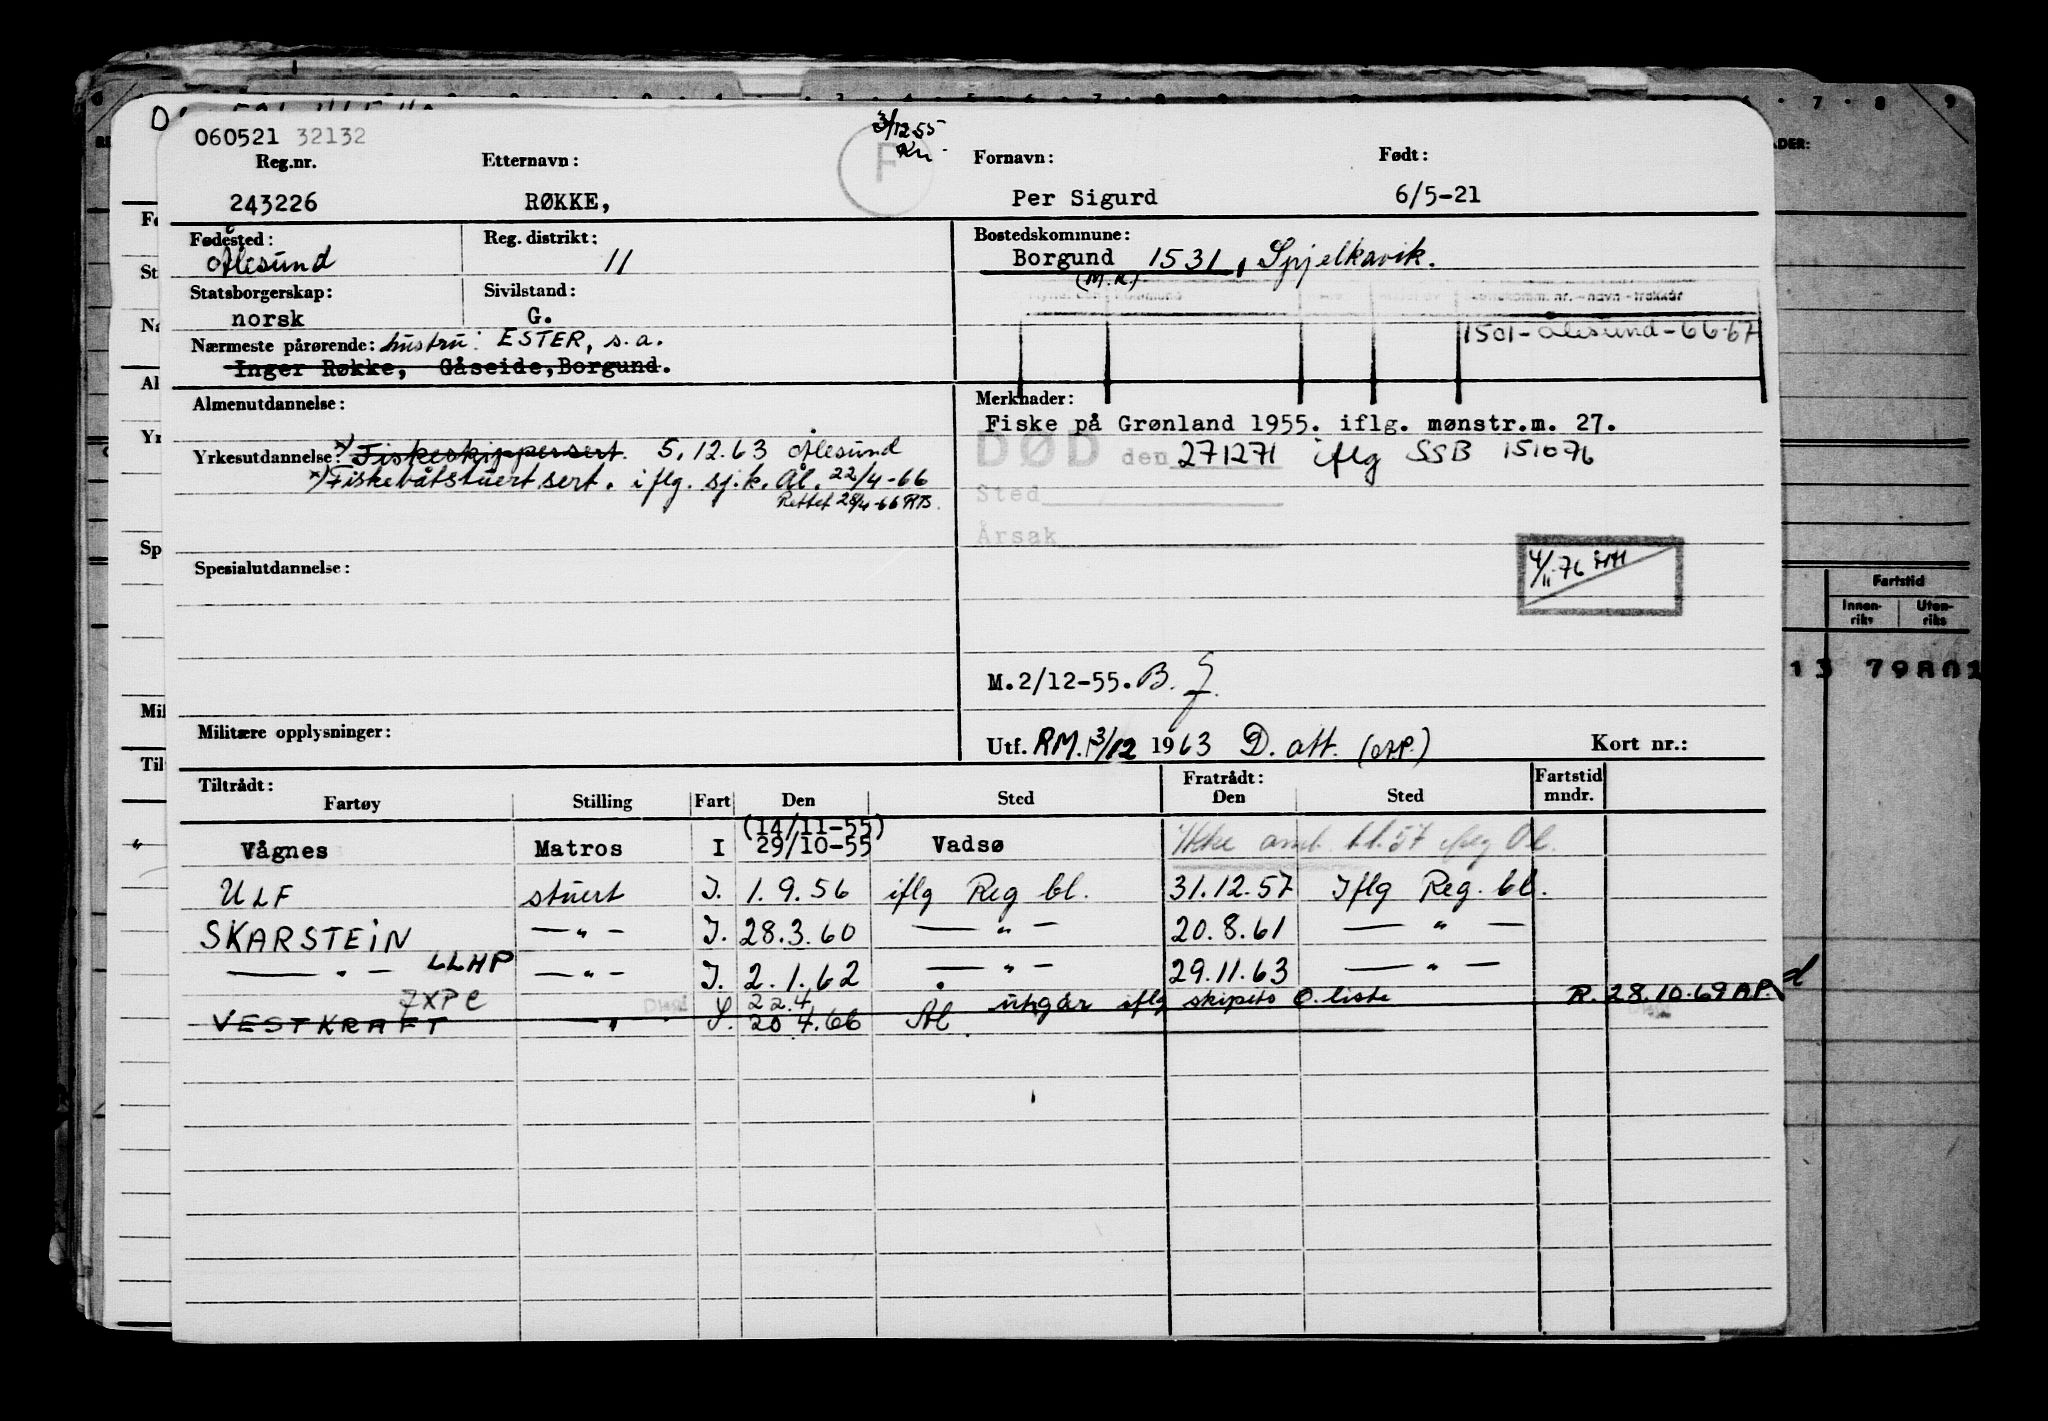 060521 32132
3/12 55
Kn.
F
Reg.nr. Etternavn: Fornavn: Født:
243226 RØKKE, Per Sigurd 6/5-21
Fødested: Reg. distrikt: Bostedskommune:
Ålesund 11 Borgund 1531, Spjelkavik.
(M.R.)
Statsborgerskap: Sivilstand:
norsk G.
1501-Ålesund-66-67
Nærmeste pårørende: hustru: ESTER, s.a.
Inger Røkke, Gåseide, Borgund.
Almenutdannelse: Merknader:
Fiske på Grønland 1955. iflg. mønstr.m. 27.
Yrkesutdannelse: x) Fiskeskippersert. 5.12.63 Ålesund
DØD den 271271 iflg SSB 151076
x) Fiskebåtstuert sert. iflg. sj.k. Ål. 22/4-66
Rettet 28/4-66 RB.
Sted
Årsak
4/11-76
Spesialutdannelse:
M.2/12-55. B.
Militære opplysninger:
Utf. RM. 3/12 1963 D. att. Kort nr.:
Tiltrådt: Fratrådt: Fartstid
Fartøy Stilling Fart Den Sted Den Sted mndr.
(14/11-55)
Vågnes Matros I 29/10-55 Vadsø Ikke
ULF stuert I. 1.9.56 iflg Reg bl. 31.12.57 Iflg Reg. bl.
SKARSTEIN — " — I. 28.3.60 — " — 20.8.61 — " —
— " — LLHP — " — I. 2.1.62 — " — 29.11.63 — " —
22.4
VESTKRAFT " 20 4.66 Ål. utgår iflg skipets O. liste R. 28.10.69 AP.
Fartstid
Innen-
riks
Uten-
riks
13 79801